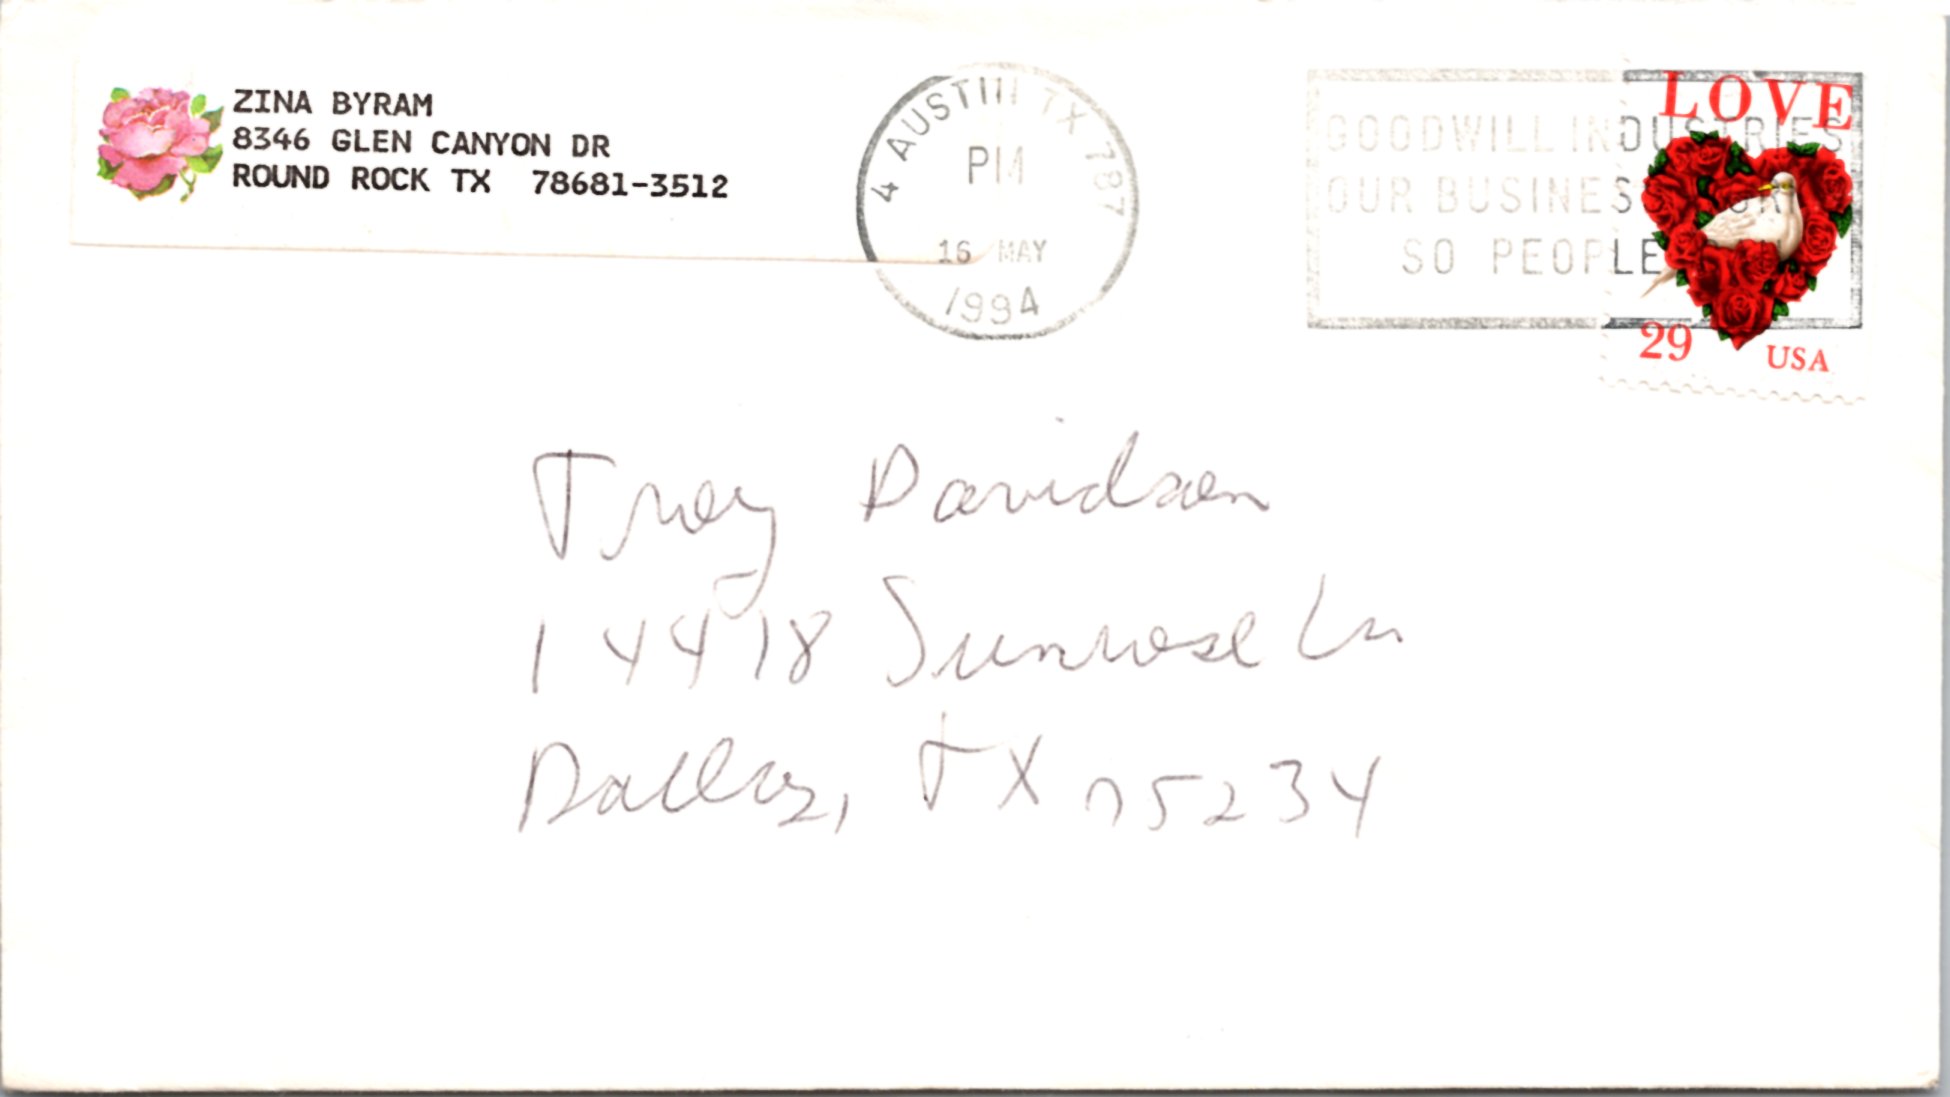 ZINA BYRAM
8346 GLEN CANYON DR
ROUND ROCK TX 78681-3512
4 AUSTIN TX 787
PM
16 MAY
1994
GOODWILL INDUSTRIES
OUR BUSINESS WORKS
SO PEOPLE
LOVE
29 USA
Trey Davidson
14478 Sunrose Ln
Dallas, TX 75234